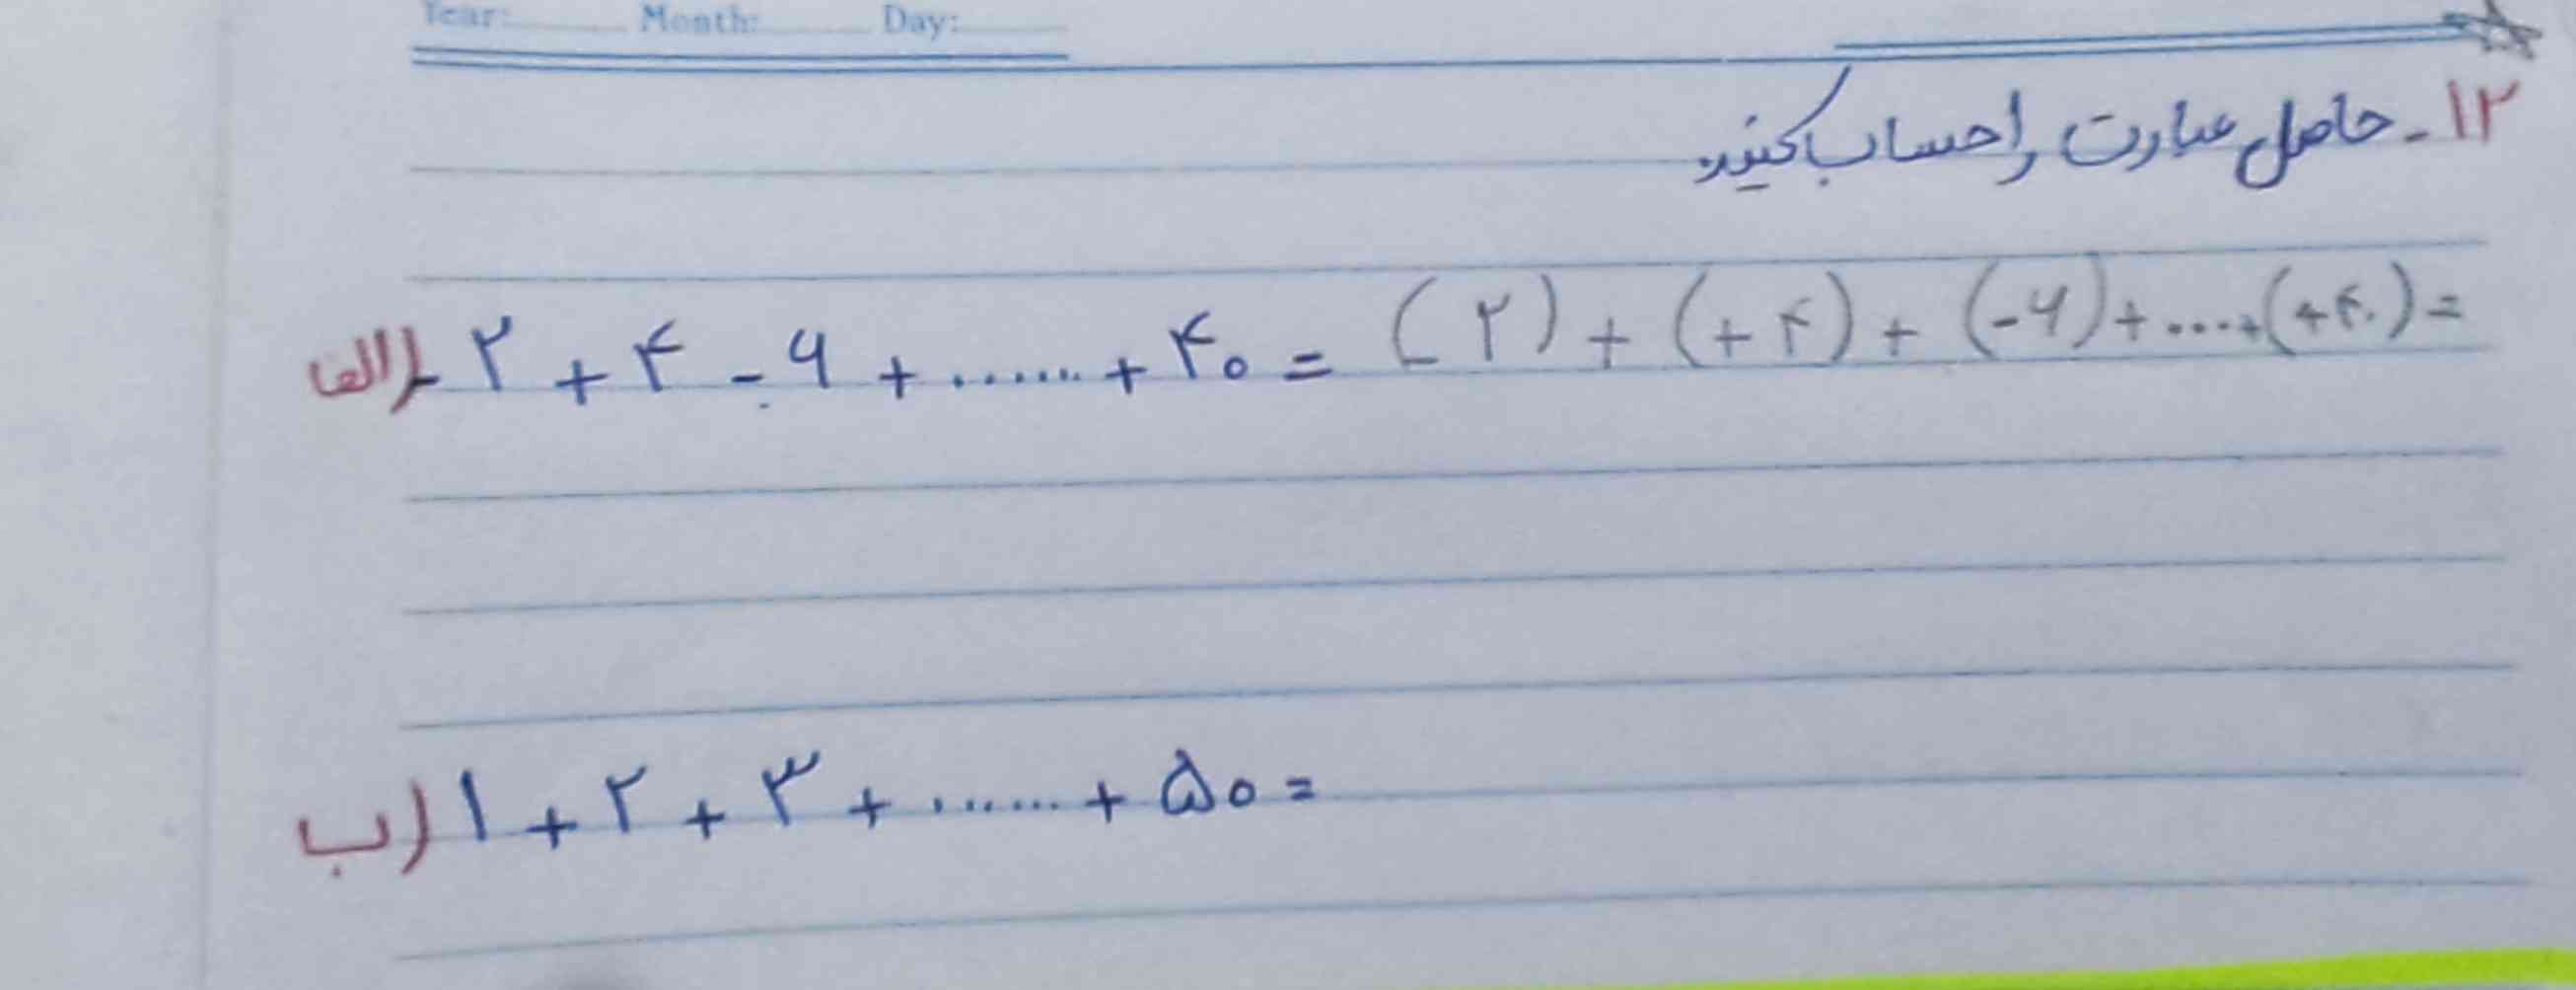 Year: Month: Day:
۱۲- حاصل عبارت را حساب کنید.
الف) -۲ + ۴ - ۶ + ...... + ۴۰ = (-۲) + (+۴) + (-۶) + .... + (+۴۰) =
ب) ۱ + ۲ + ۳ + ...... + ۵۰ =